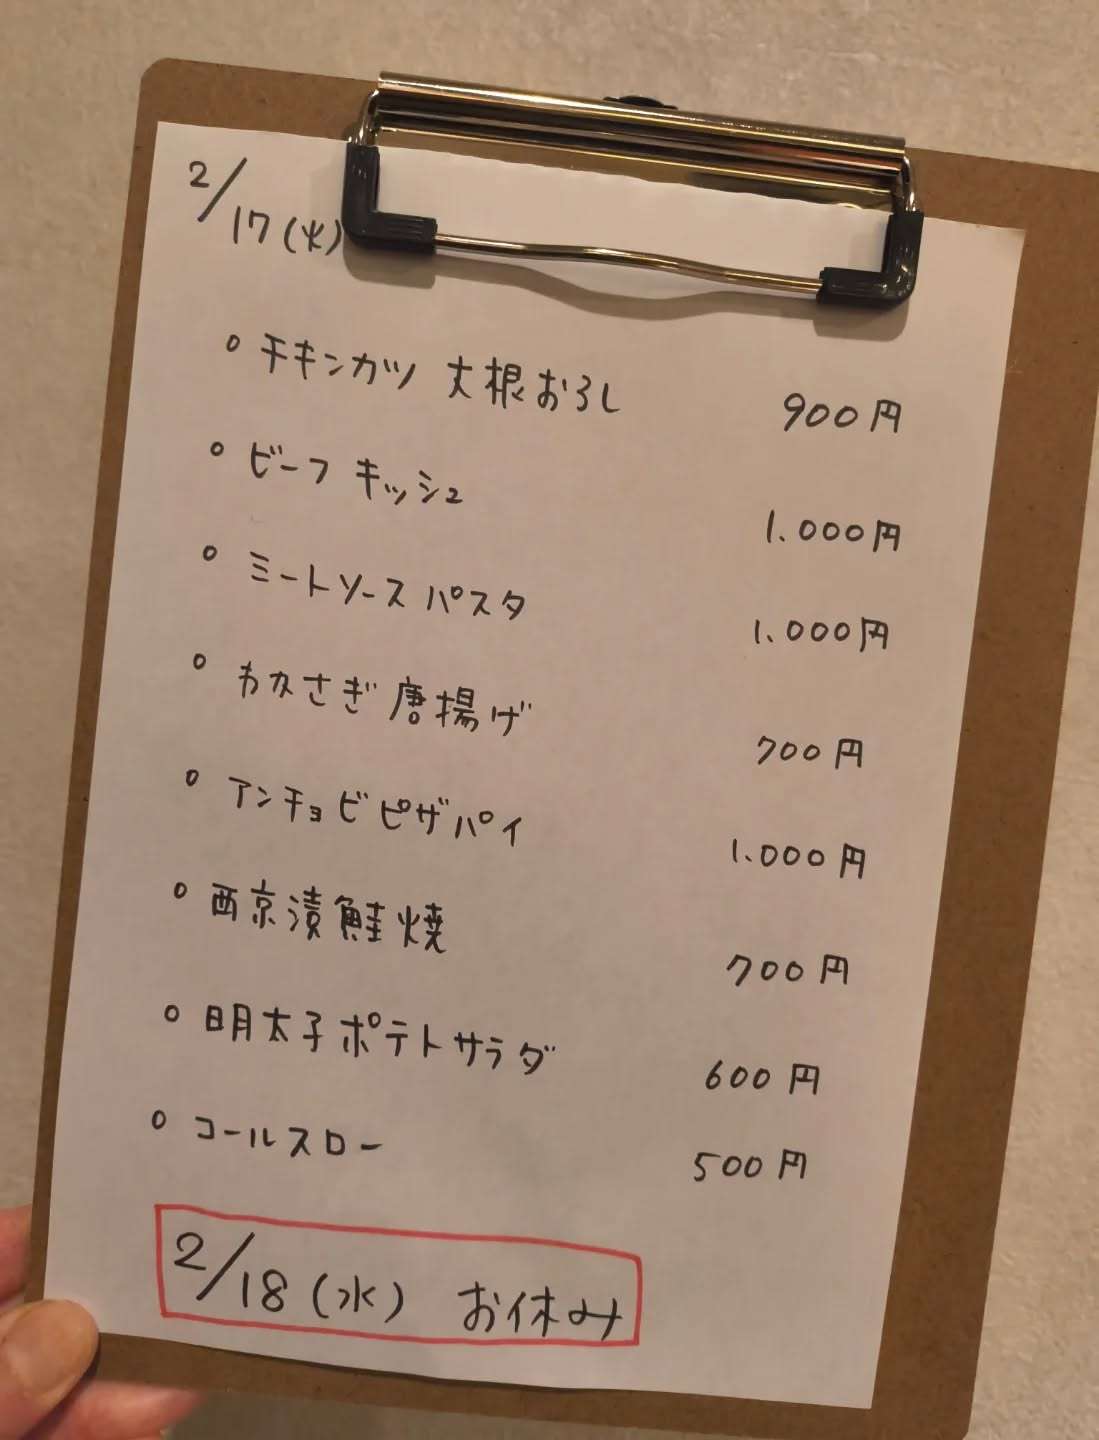 2/17(火)
○ チキンカツ 大根おろし 900円
○ ビーフ キッシュ 1.000円
○ ミートソース パスタ 1.000円
○ わかさぎ 唐揚げ 700円
○ アンチョビ ピザパイ 1.000円
○ 西京漬鮭焼 700円
○ 明太子ポテトサラダ 600円
○ コールスロー 500円
2/18(水) お休み